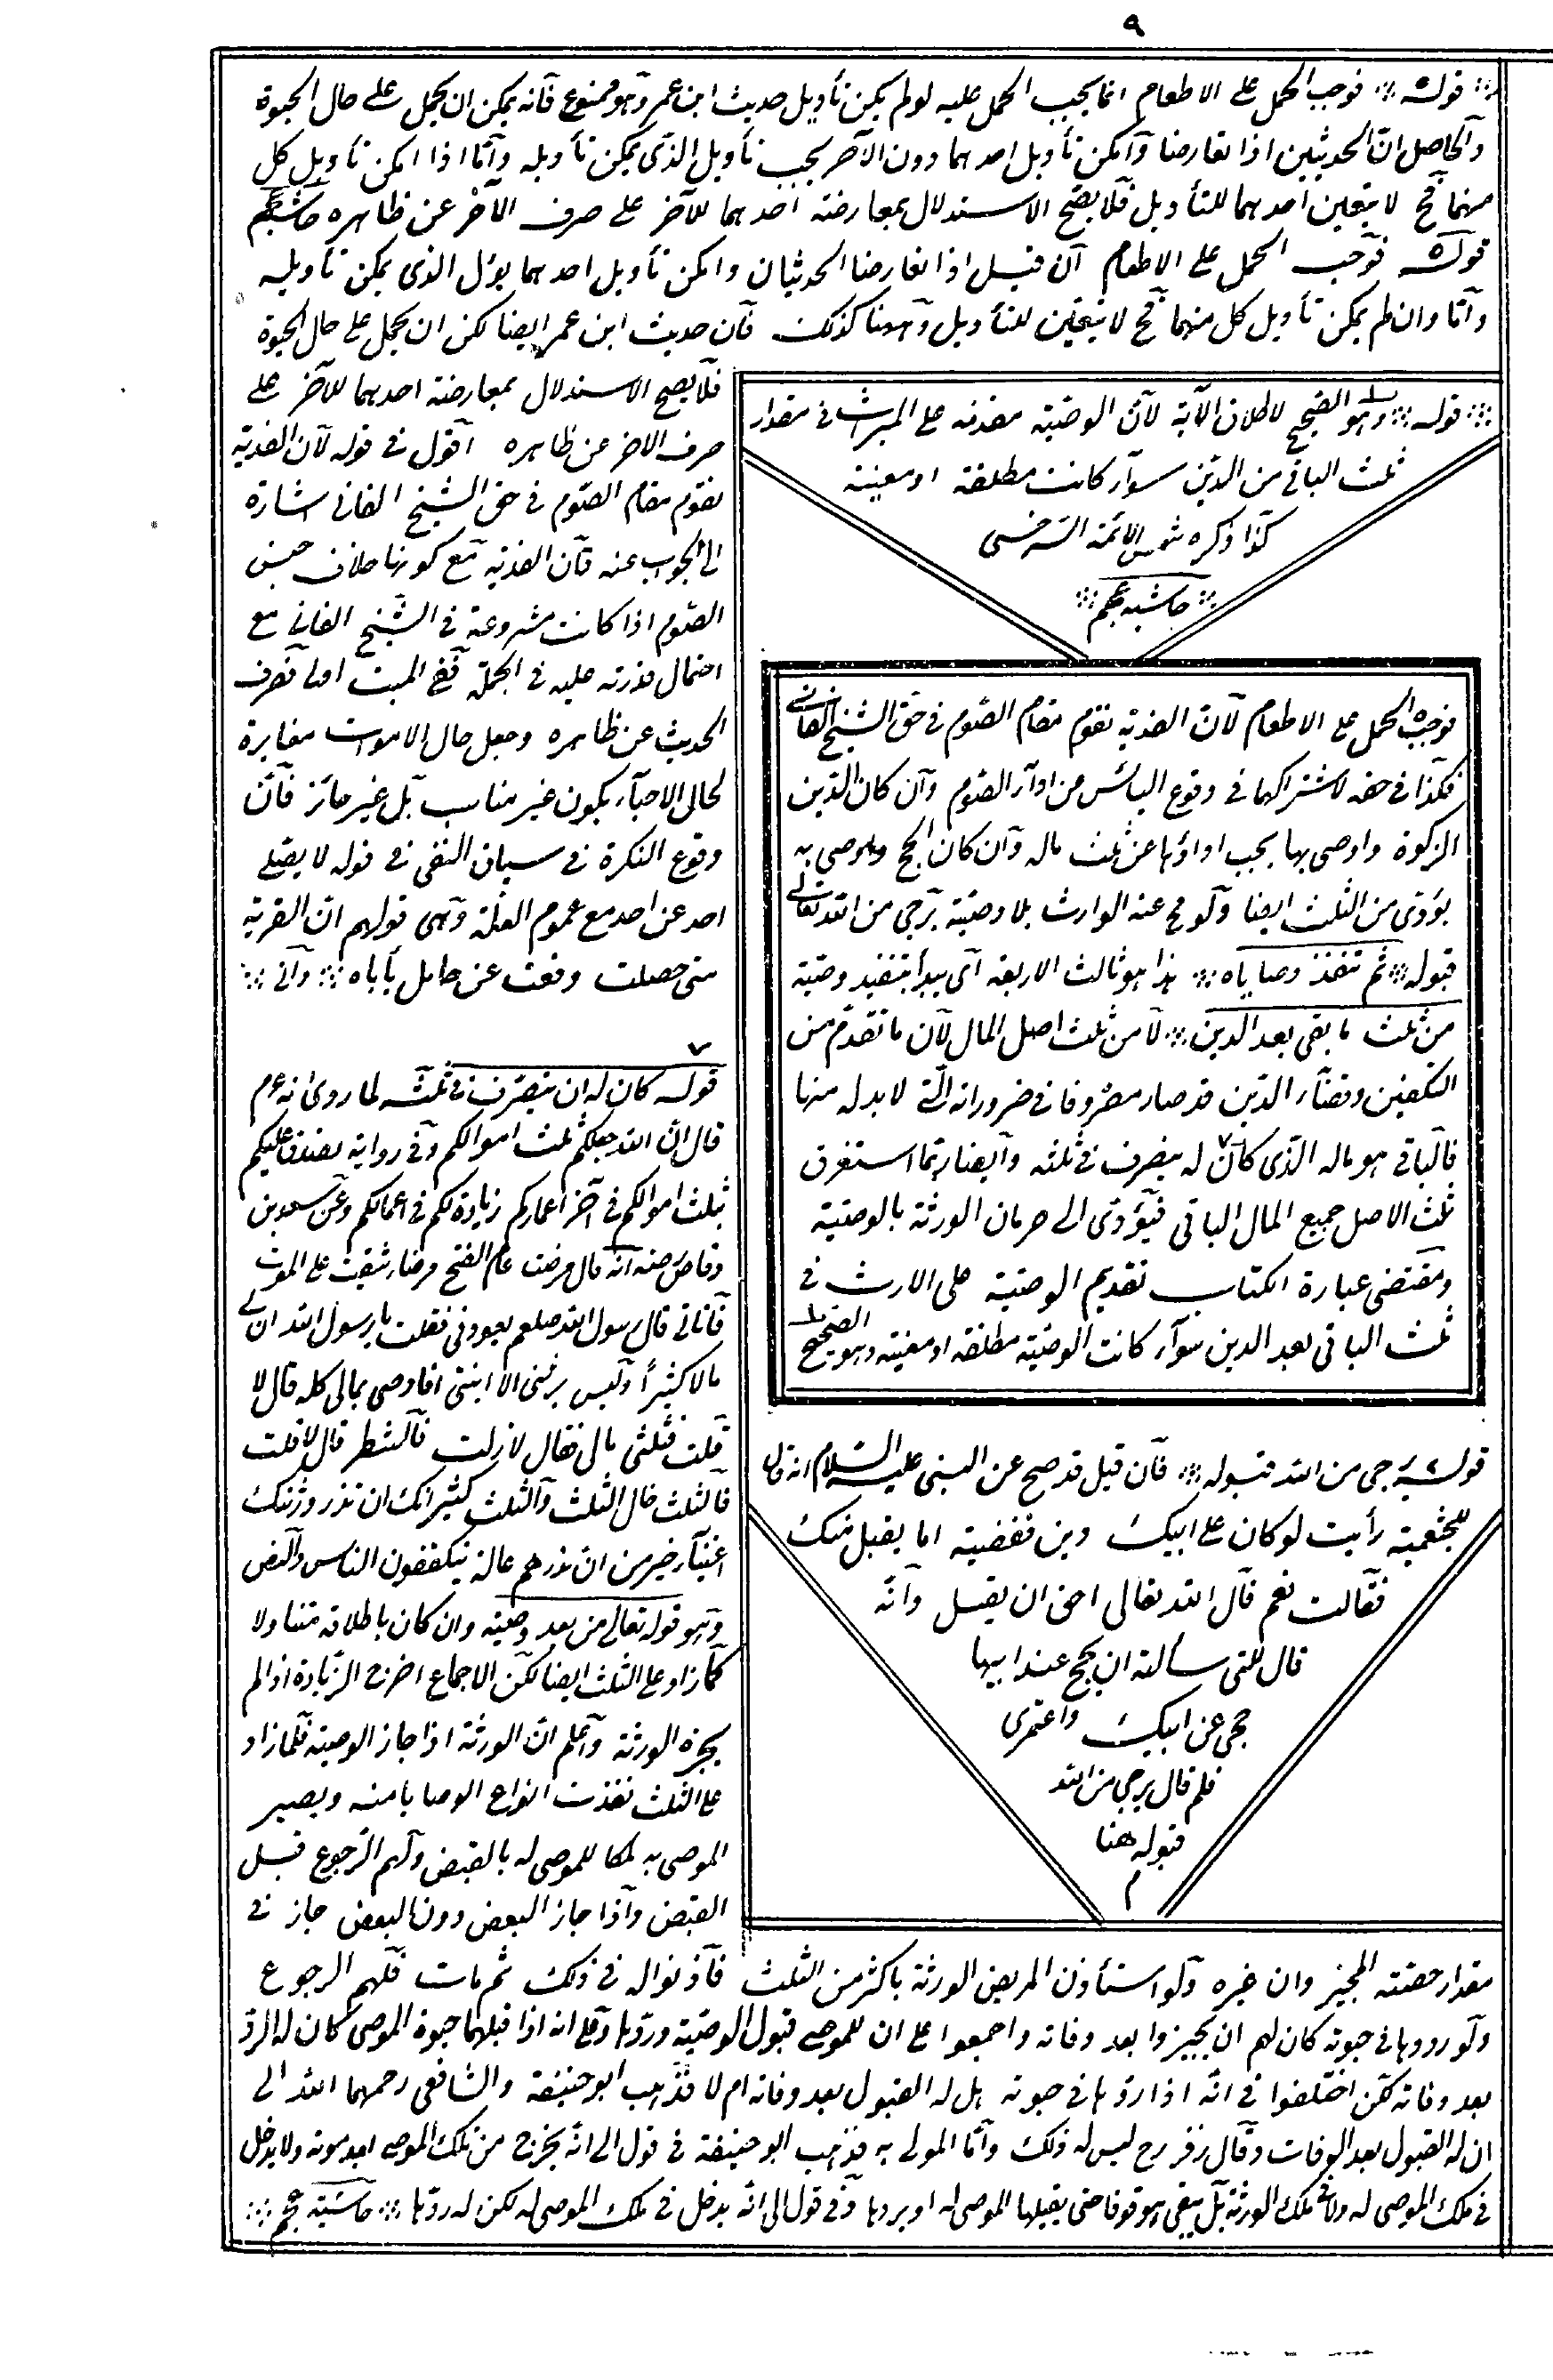 ٩
قوله فوجب الحمل على الاطعام انما يجب الحمل عليه لو لم يكن تأويل حديث ابن عمر وهو ممنوع فانه يمكن ان يحمل على حال الحيوة
والحاصل ان الحديثين اذا تعارضا وامكن تأويل احدهما دون الآخر يجب تأويل الذى يمكن تأويله واما اذا امكن تأويل كل
منهما فح لا يتعين احدهما للتأويل فلا يصح الاستدلال بمعارضة احدهما للآخر على صرف الآخر عن ظاهره حاشيه عجم
قوله فوجب الحمل على الاطعام ان قيل اذا تعارضا الحديثان وامكن تأويل احدهما يؤل الذى يمكن تأويله
واما وان لم يمكن تأويل كل منهما فح لا يتعين للتأويل وههنا كذلك فان حديث ابن عمر ايضا لكن ان يحمل على حال الحيوة
فلا يصح الاستدلال بمعارضة احدهما للآخر على
صرف الاخر عن ظاهره اقول فى قوله لان الفدية
تقوم مقام الصوم فى حق الشيخ الفانى اشارة
الى الجواب عنه فان الفدية مع كونها خلاف جنس
الصوم اذا كانت مشروعة فى الشيخ الفانى مع
احتمال قدرته عليه فى الجملة ففى الميت اولى فصرف
الحديث عن ظاهره وجعل حال الاموات مغايرة
لحال الاحياء يكون غير مناسب بل غير جائز فان
وقوع النكرة فى سياق النفى فى قوله لا يصلى
احد عن احد مع عموم العلة وهى قولهم ان القربة
متى حصلت وقعت عن حامل يأباه وانى
قوله وهو الصحيح لاطلاق الآية لان الوصية مقدمة على الميراث فى مقدار
ثلث الباقى من الدين سواء كانت مطلقة او معينة
كذا ذكره شمس الائمة السرخسى
حاشيه عجم
فوجب الحمل على الاطعام لان الفدية تقوم مقام الصوم فى حق الشيخ الفانى
فكذا فى حقه لاشتراكهما فى وقوع اليأس من اداء الصوم وان كان الدين
الزكوة واوصى بها يجب اداؤها عن ثلث ماله وان كان الحج واوصى به
يؤدى من الثلث ايضا ولو حج عنه الوارث بلا وصية يرجى من الله تعالى
قبوله ثم تنفذ وصاياه هذا هو ثالث الاربعة اى يبدأ بتنفيذ وصية
من ثلث ما بقى بعد الدين لا من ثلث اصل المال لان ما تقدم من
التكفين وقضاء الدين قد صار مصروفا فى ضروراته التى لا بد له منها
فالباقى هو ماله الذى كان له يتصرف فى ثلثه وايضا ربما استغرق
ثلث الاصل جميع المال الباقى فيؤدى الى حرمان الورثة بالوصية
ومقتضى عبارة الكتاب تقديم الوصية على الارث فى
ثلث الباقى بعد الدين سواء كانت الوصية مطلقة او معينة وهو الصحيح
قوله يرجى من الله قبوله فان قيل قد صح عن النبى عليه السلام انه قال
للخثعمية رأيت لو كان على ابيك دين فقضية اما يقبل منك
فقالت نعم قال الله تعالى احق ان يقبل وانه
قال للتى سألته ان يحج عند ابيها
حجى عن ابيك واعتمرى
فلم قال يرجى من الله
قبوله هنا
م
قوله كان له ان يتصرف فى ثلثه لما روى انه عم
قال ان الله جعلكم ثلث اموالكم وفى رواية تصدق عليكم
بثلث اموالكم فى آخر اعماركم زيادة لكم فى اعمالكم وعن سعد بن
وقاص رضه انه قال مرضت عام الفتح مرضا شفيت على الموت
فاتانى قال رسول الله صلعم يعودنى فقلت يا رسول الله ان لى
مالا كثيرا وليس يرثنى الا ابنتى افاوصى بمالى كله قال لا
قلت فثلثى مالى فقال لا قلت فالشطر قال لا قلت
فالثلث قال الثلث والثلث كثير انك ان تذر ورثتك
اغنياء خير من ان تذرهم عالة يتكففون الناس والنص
وهو قوله تعالى من بعد وصية وان كان باطلاقه متناولا
لما زاد على الثلث ايضا لكن الاجماع اخرج الزيادة اذا لم
يجزه الورثة واعلم ان الورثة اذا جاز الوصية فلما زاد
على الثلث نفذت انواع الوصايا منه ويصير
الموصى به ملكا للموصى له بالقبض ولهم الرجوع قبل
القبض واذا جاز البعض دون البعض جاز فى
مقدار حصته المجيز وان غيره ولو استأذن المريض الورثة باكثر من الثلث فأذنوا له فى ذلك ثم مات فلهم الرجوع
ولو ردوها فى حيوته كان لهم ان يجيزوا بعد وفاته واجمعوا على ان للموصى قبول الوصية وردها وعلى انه اذا قبلها حيوة الموصى كان له الرد
بعد وفاته لكن اختلفوا فى انه اذا ردها فى حيوته هل له القبول بعد وفاته ام لا فذهب ابو حنيفة والشافعى رحمهما الله الى
ان له القبول بعد الوفات وقال زفر رح ليس له ذلك واما المولى به فذهب ابو حنيفة فى قول الى انه يخرج من ملك الموصى بعد موته ولا يدخل
فى ملك الموصى له ولا فى ملك الورثة بل يبقى موقوفا حتى يقبلها الموصى له او يردها وفى قول الى انه يدخل فى ملك الموصى له لكن له ردها حاشية عجم